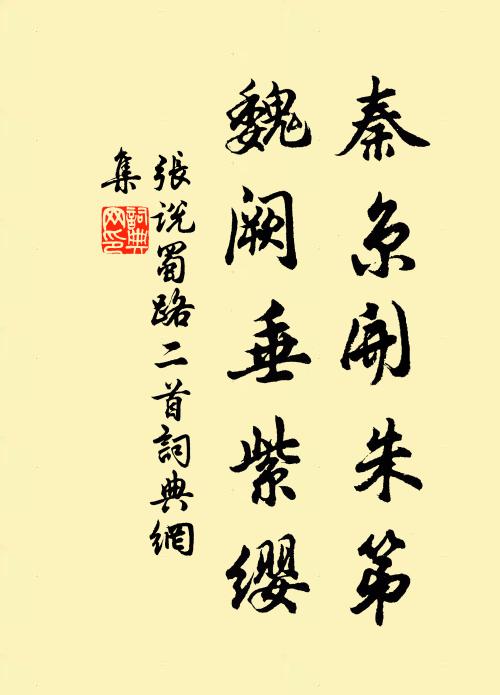 秦京開朱第
魏阙垂紫缨
張说蜀路二首詞典網
集
詞典
网印